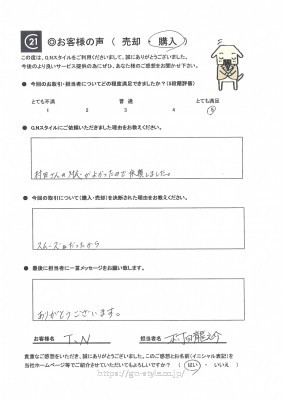 C 21 ◎お客様の声（ 売却 ・ 購入 ）
この度は、G.Nスタイルをご利用くださいまして、誠にありがとうございました。
今後のより良いサービス提供の為にぜひ、あなた様のご感想をお聞かせ下さい。
● 今回のお取引・担当者についてどの程度満足できましたか？(5段階評価)
とても不満 普 通 とても満足
1 2 3 4 5
● G.Nスタイルにご依頼いただきました理由をお教えください。
村田さんの対応がよかったので依頼しました。
● 今回の取引について(購入・売却)を決断された理由をお教えください。
スムーズだったから
● 最後に担当者に一言メッセージをお願い致します。
ありがとうございます。
お客様名 T.N 担当者名
貴重なご感想をいただき、誠にありがとうございました。このご感想とお名前(イニシャル表記)を
当社ホームページ等でご紹介させていただいてもよろしいですか？ （ はい ・ いいえ ）
https://gn-style.co.jp/